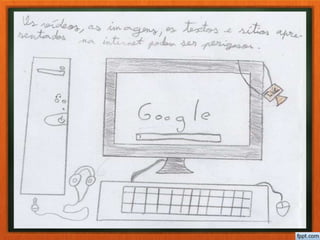 Os vídeos, as imagens, os textos e sítios apre-
sentados na internet podem ser perigosos.
Google
fppt.com